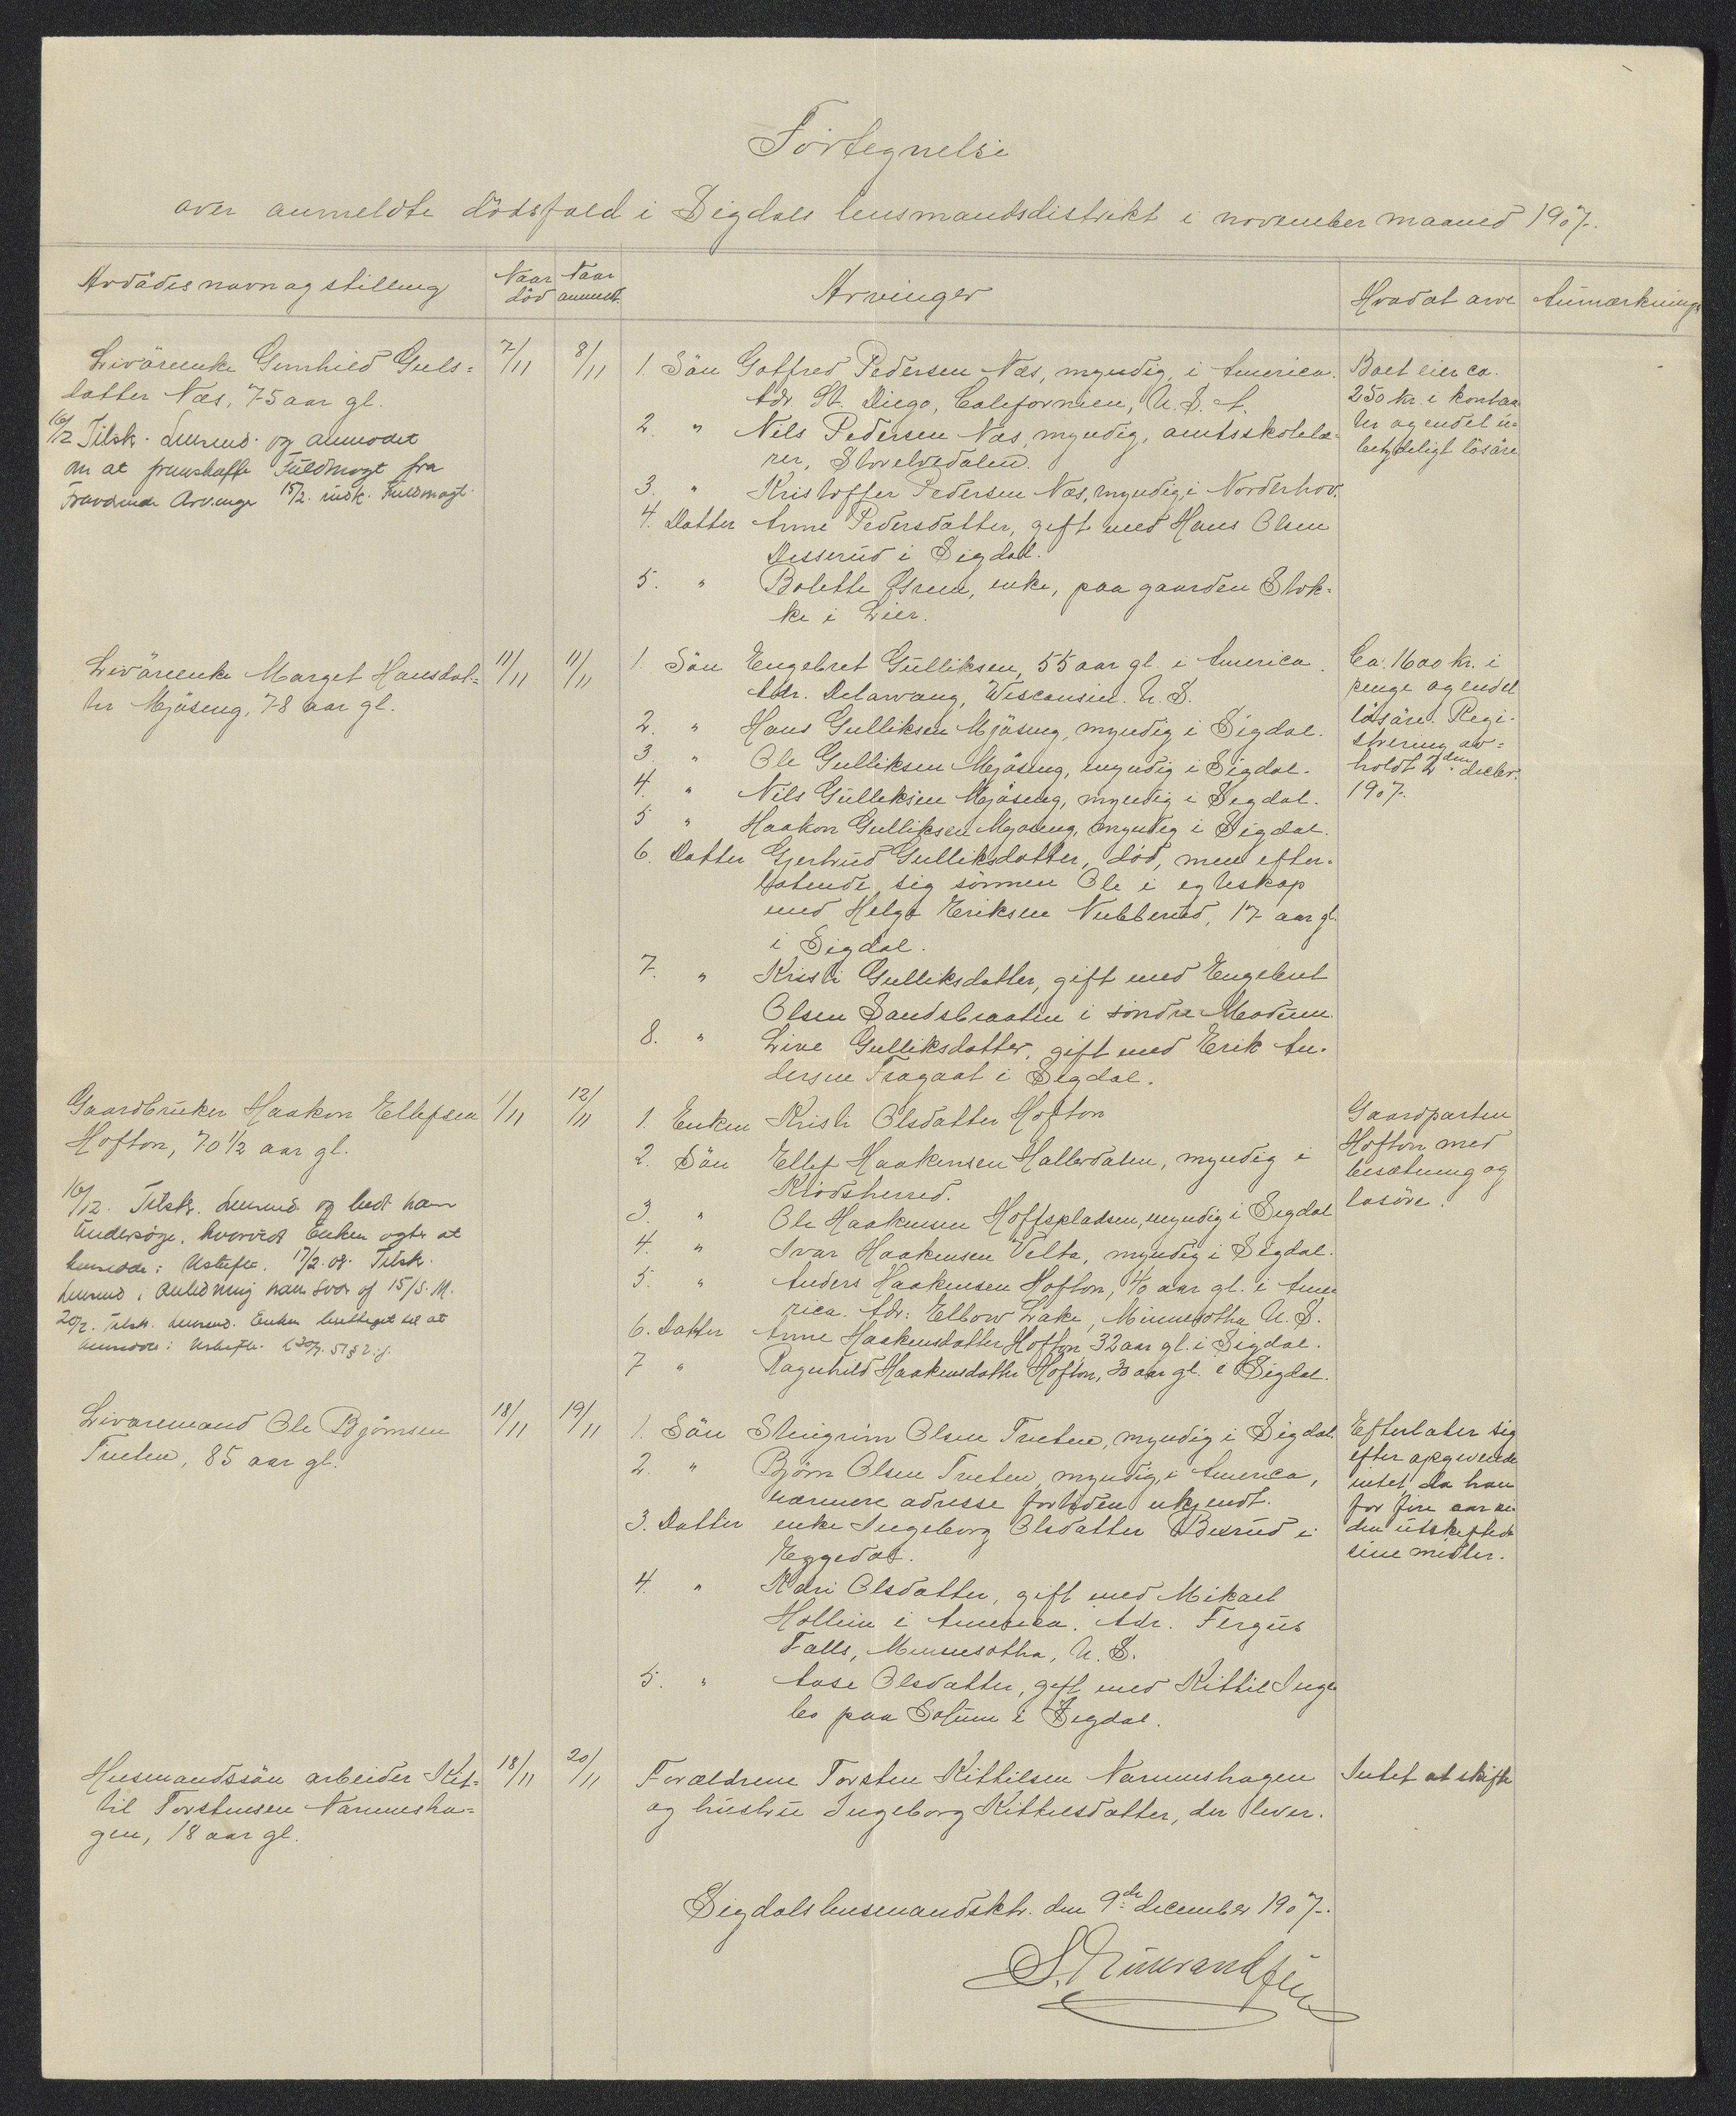 Fortegnelse
over anmeldte dödsfald i Sigdals lensmandsdistrikt i november maaned 1907.
Avdödes navn og stilling
Naar död
Naar anmeldt.
Arvinger
Hvad at arve
Anmærkninger
Livöreenke Gunhild Guls=
datter Næs, 75 aar gl.
16/12 Tilsk. Lensmd. og anmodet
om at fremskaffe Fuldmagt fra
Fraværende Arvinge 15/2. indk. Fuldmagt.
7/11
8/11
1. Sön Gotfred Pedersen Næs, myndig, i America.
Adr. St. Diego, Californien, U. S. A.
2. " Nils Pedersen Næs, myndig, amtsskolelæ=
rer, Storelvedalen.
3. " Kristoffer Pedersen Næs, myndig, i Norderhov.
4. Datter Anne Pedersdatter, gift med Hans Olsen
Disserud i Sigdal.
5. " Bolette Östrem, enke, paa gaarden Stok=
ke i Lier.
Boet eier ca.
250 kr. i kontan
ter og endel u=
betydeligt lösöre
Livöreenke Marget Hansdat=
ter Mjöseng, 78 aar gl.
11/11
11/11
1. Sön Engebret Gulliksen, 55 aar gl. i America.
Adr. Delarvang, Wisconsin. U. S.
2. " Hans Gulliksen Mjöseng, myndig i Sigdal.
3. " Ole Gulliksen Mjöseng, myndig i Sigdal.
4. " Nils Gulliksen Mjöseng, myndig i Sigdal.
5 " Haakon Gulliksen Mjöseng, myndig i Sigdal.
6. Datter Gjertrud Gulliksdatter, död, men efter=
latende sig sönnen Ole i egteskap
med Helge Eriksen Nubberud, 17 aar gl.
i Sigdal.
7. " Kristi Gulliksdatter, gift med Engebret
Olsen Sandsbraaten i söndre Modum.
8. " Live Gulliksdatter, gift med Erik An=
dersen Fragaat i Sigdal.
Ca. 1600 kr. i
penge og endel
lösöre. Regi=
strering av=
holdt 2den decbr.
1907.
Gaardbruker Haakon Ellefsen
Hofton, 70 1/2 aar gl.
16/12. Tilsk. Lensmd. og bedt ham
undersöge, hvorvidt Enken agter at
hensidde i Uskifte. 17/2.08. Tilsk.
Lensmd i Anledning hans Svar af 15/S.M.
20/2. Tilsk. Lensmd. Enken berettiget til at
hensidde i Uskifte.
1/11
12/11
1. Enken Kristi Olsdatter Hofton
2. Sön Ellef Haakensen Hallerdalen, myndig i
Krödsherred.
3. " Ole Haakensen Hoffspladsen, myndig i Sigdal
4. " Ivar Haakensen Velta, myndig i Sigdal.
5. " Anders Haakensen Hofton, 40 aar gl. i Ame
rica. Adr: Elbow Lake, Minnesotha U. S.
6. Datter Anne Haakensdatter Hofton, 32 aar gl. i Sigdal.
7 " Ragnhild Haakensdatter Hofton, 30 aar gl. i Sigdal.
Gaardparten
Hofton med
besætning og
lösöre.
Livöremand Ole Björnsen
Tveten, 85 aar gl.
18/11
19/11
1. Sön Stengrim Olsen Tveten, myndig i Sigdal.
2. " Björn Olsen Tveten, myndig, i America,
nærmere adresse fortiden ukjendt.
3. Datter enke Ingeborg Olsdatter Burud i
Eggedal.
4. " Kari Olsdatter, gift med Mikael
Hollein i America. Adr. Fergus
Falls, Minnesotha, U. S.
5. " Aase Olsdatter, gift med Kittil Inge
bo paa Solum i Sigdal.
Efterlater sig
efter opgivende
intet, da han
for fire aar si
den utskiftede
sine midler.
Husmandssön arbeider Kit=
til Torstensen Narumsha=
gen, 18 aar gl.
18/11
20/11
Forældrene Torsten Kittilsen Narumshagen
og hustru Ingeborg Kittilsdatter, der lever.
Intet at skifte
Sigdals lensmandsktr. den 9de december 1907.